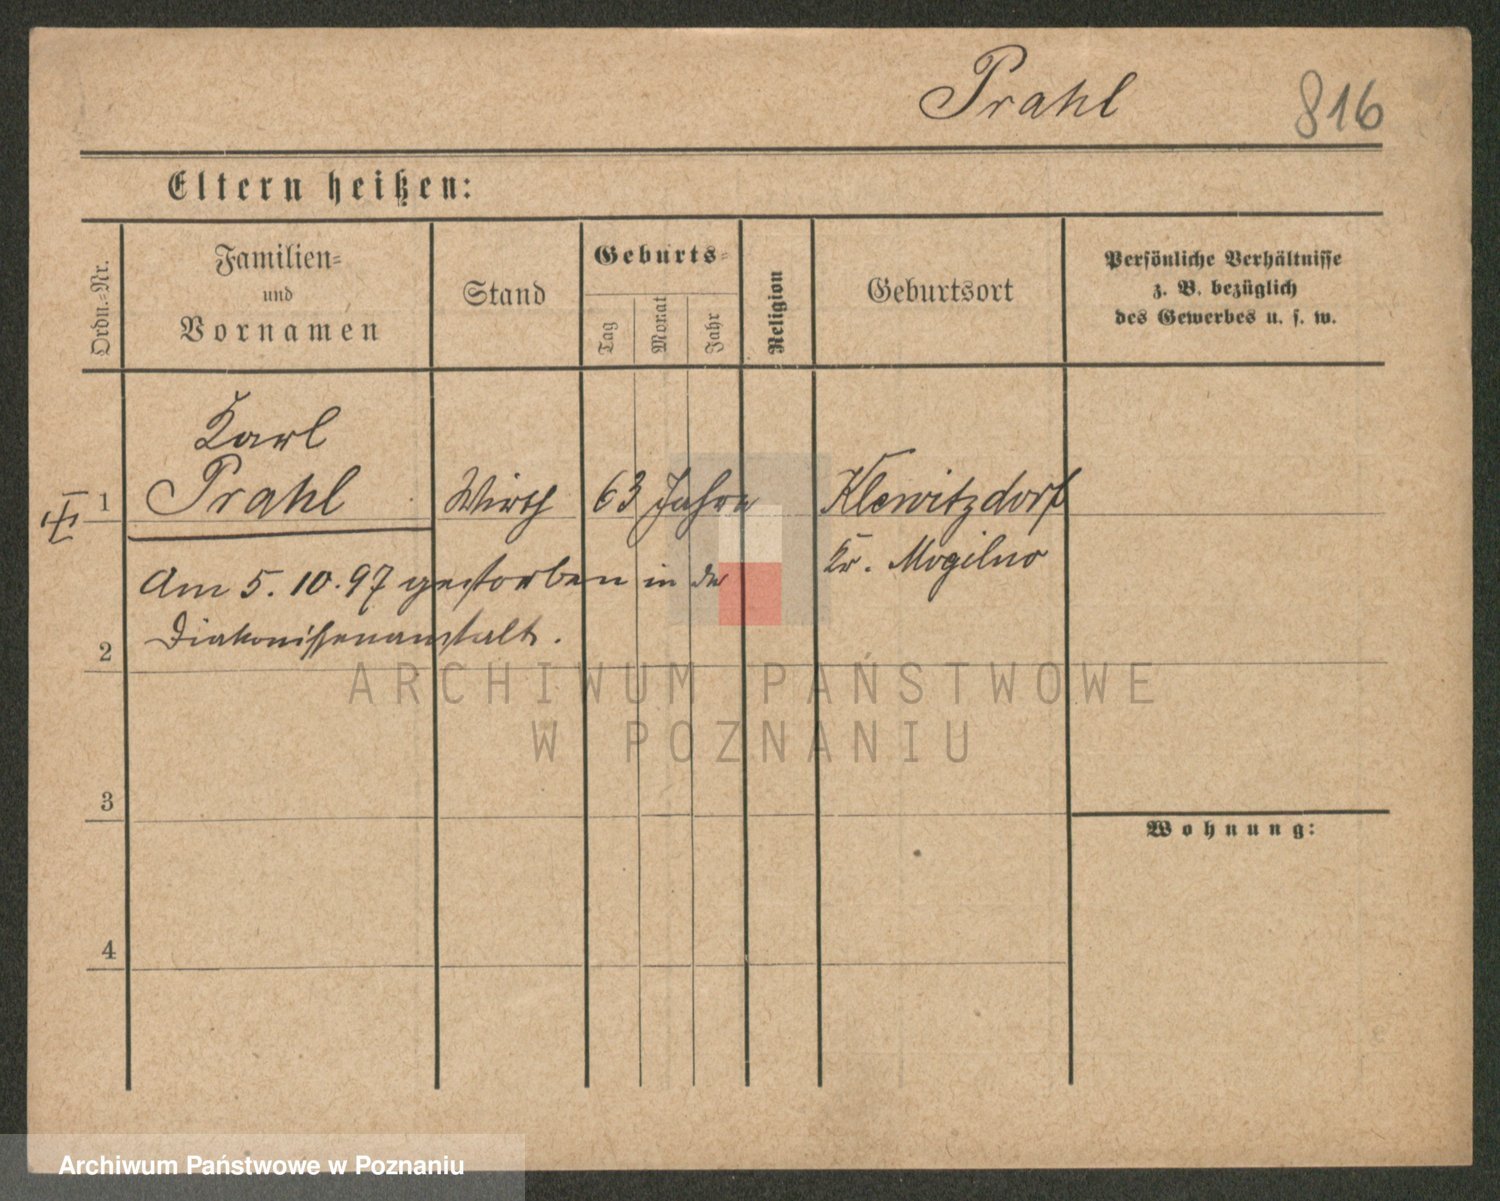 Prahl 816
Eltern heißen:
Ordn.=Nr.
Familien=
und
Vornamen
Stand
Geburts=
Tag
Monat
Jahr
Religion
Geburtsort
Persönliche Verhältnisse
z. B. bezüglich
des Gewerbes u. s. w.
Karl
1 Prahl Wirth 63 Jahre Klewitzdorf
Kr. Mogilno
Am 5. 10. 97 gestorben in der
2 Diakonissenanstalt.
ARCHIWUM PAŃSTWOWE
W POZNANIU
3
Wohnung:
4
Archiwum Państwowe w Poznaniu